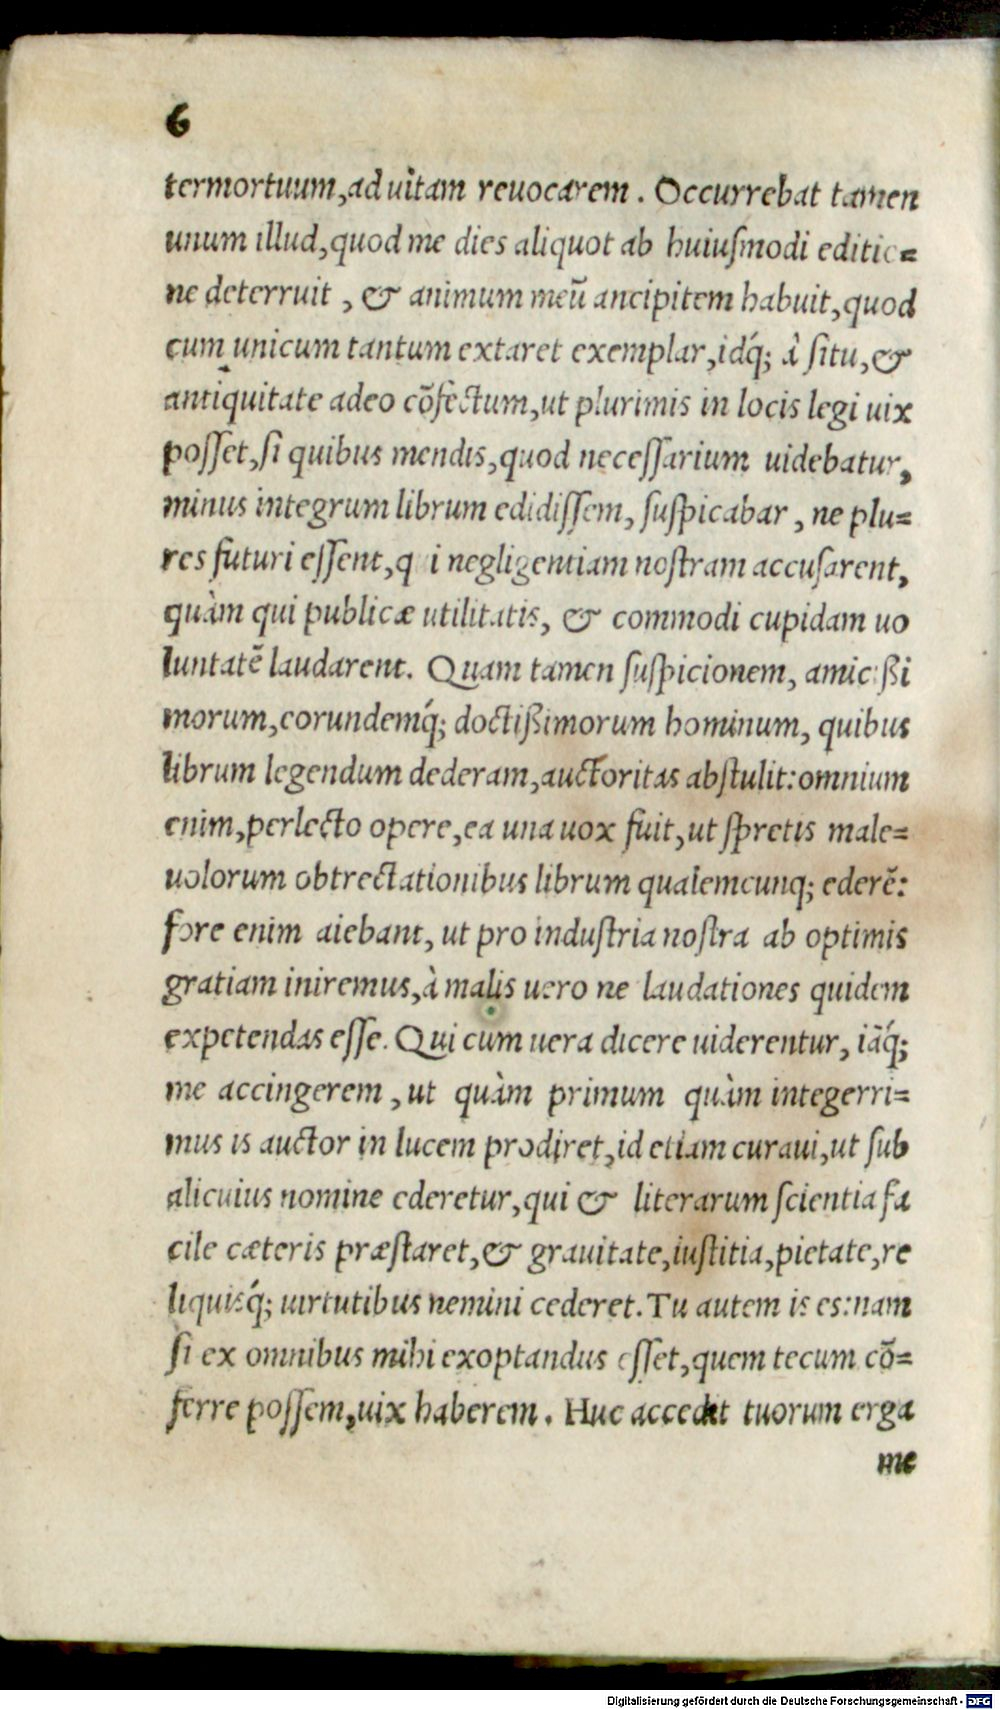 6
termortuum,ad uìtam reuocarem. Occurrebat tamen
unum illud,quod me dies aliquot ab huiuſmodi editio=
ne deterruit , & animum meũ ancipitem habuit,quod
cum unicum tantum extaret exemplar,idq́; à ſitu,&
antiquitate adeo cõfectum,ut plurimis in locis legi uix
poſſet,ſi quibus mendis,quod neceſſarium uidebatur,
minus integrum librum edidiſſem, ſuſpicabar , ne plu=
res futuri eſſent,q i negligentiam noſtram accuſarent,
quàm qui publicæ utilitatis, & commodi cupidam uo
luntatẽ laudarent. Quam tamen ſuſpicionem, amicißi
morum,eorundemq́; doctißimorum hominum, quibus
librum legendum dederam,auctoritas abſtulit:omnium
enim,perlecto opere,ea una uox fuit,ut ſpretis male=
uolorum obtrectationibus librum qualemcunq; ederẽ:
fore enim aiebant, ut pro induſtria noſtra ab optimis
gratiam iniremus,à malis uero ne laudationes quidem
expetendas eſſe. Qui cum uera dicere uiderentur, iãq́;
me accingerem , ut quàm primum quàm integerri=
mus is auctor in lucem prodiret,id etiam curaui,ut ſub
alicuius nomine ederetur,qui & literarum ſcientia fa
cile cæteris præſtaret,& grauitate,iuſtitia,pietate,re
liquisq́; uirtutibus nemini cederet. Tu autem is es:nam
ſi ex omnibus mihi exoptandus eſſet,quem tecum cõ=
ferre poſſem,uix haberem. Huc accedit tuorum erga
me
Digitalisierung gefördert durch die Deutsche Forschungsgemeinschaft - DFG